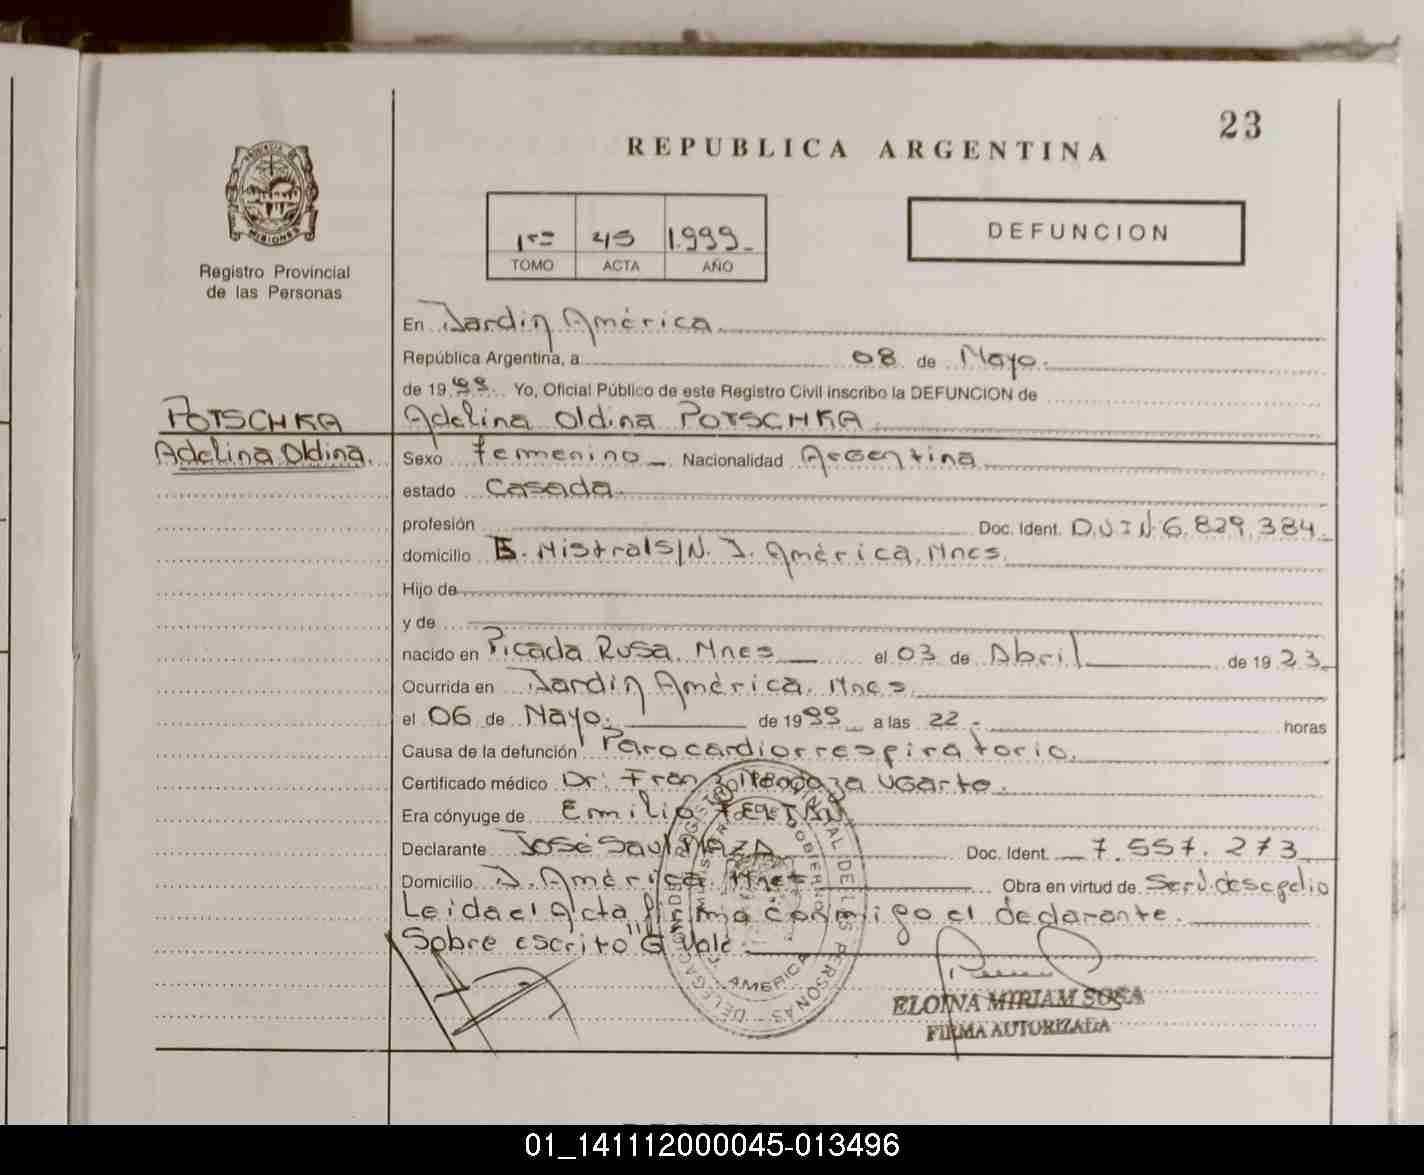 23
REPUBLICA ARGENTINA
PROVINCIA DE
MISIONES
Registro Provincial
de las Personas
1ro 45 1.999.
TOMO ACTA AÑO
DEFUNCION
En Jardin América.
República Argentina, a 08 de Mayo.
de 1999. Yo, Oficial Público de este Registro Civil inscribo la DEFUNCION de
POTSCHKA
Adelina Oldina POTSCHKA
Adelina Oldina.
Sexo femenino Nacionalidad Argentina
estado Casada.
profesión Doc. Ident. 6.829.384.
domicilio G. Mistral S/N. J. América. Mnes.
Hijo de
y de
nacido en Picada Rusa. Mnes el 03 de Abril de 1923
Ocurrida en Jardin América. Mnes.
el 06 de Mayo. de 1999 a las 22 - horas
Causa de la defunción Parocardiorrespiratorio.
Certificado médico Dr: Ugarte.
Era cónyuge de Emilio
Declarante José Saul Doc. Ident. 7.557.273
Domicilio J. América. Mnes Obra en virtud de Serv. de sepelio
Leida el Acta firma conmigo el declarante.
Sobre escrito "G" Vale.
DELEGACION
DE LAS PERSONAS
AMERICA
ELOINA MIRIAM SOSA
FIRMA AUTORIZADA
01_141112000045-013496